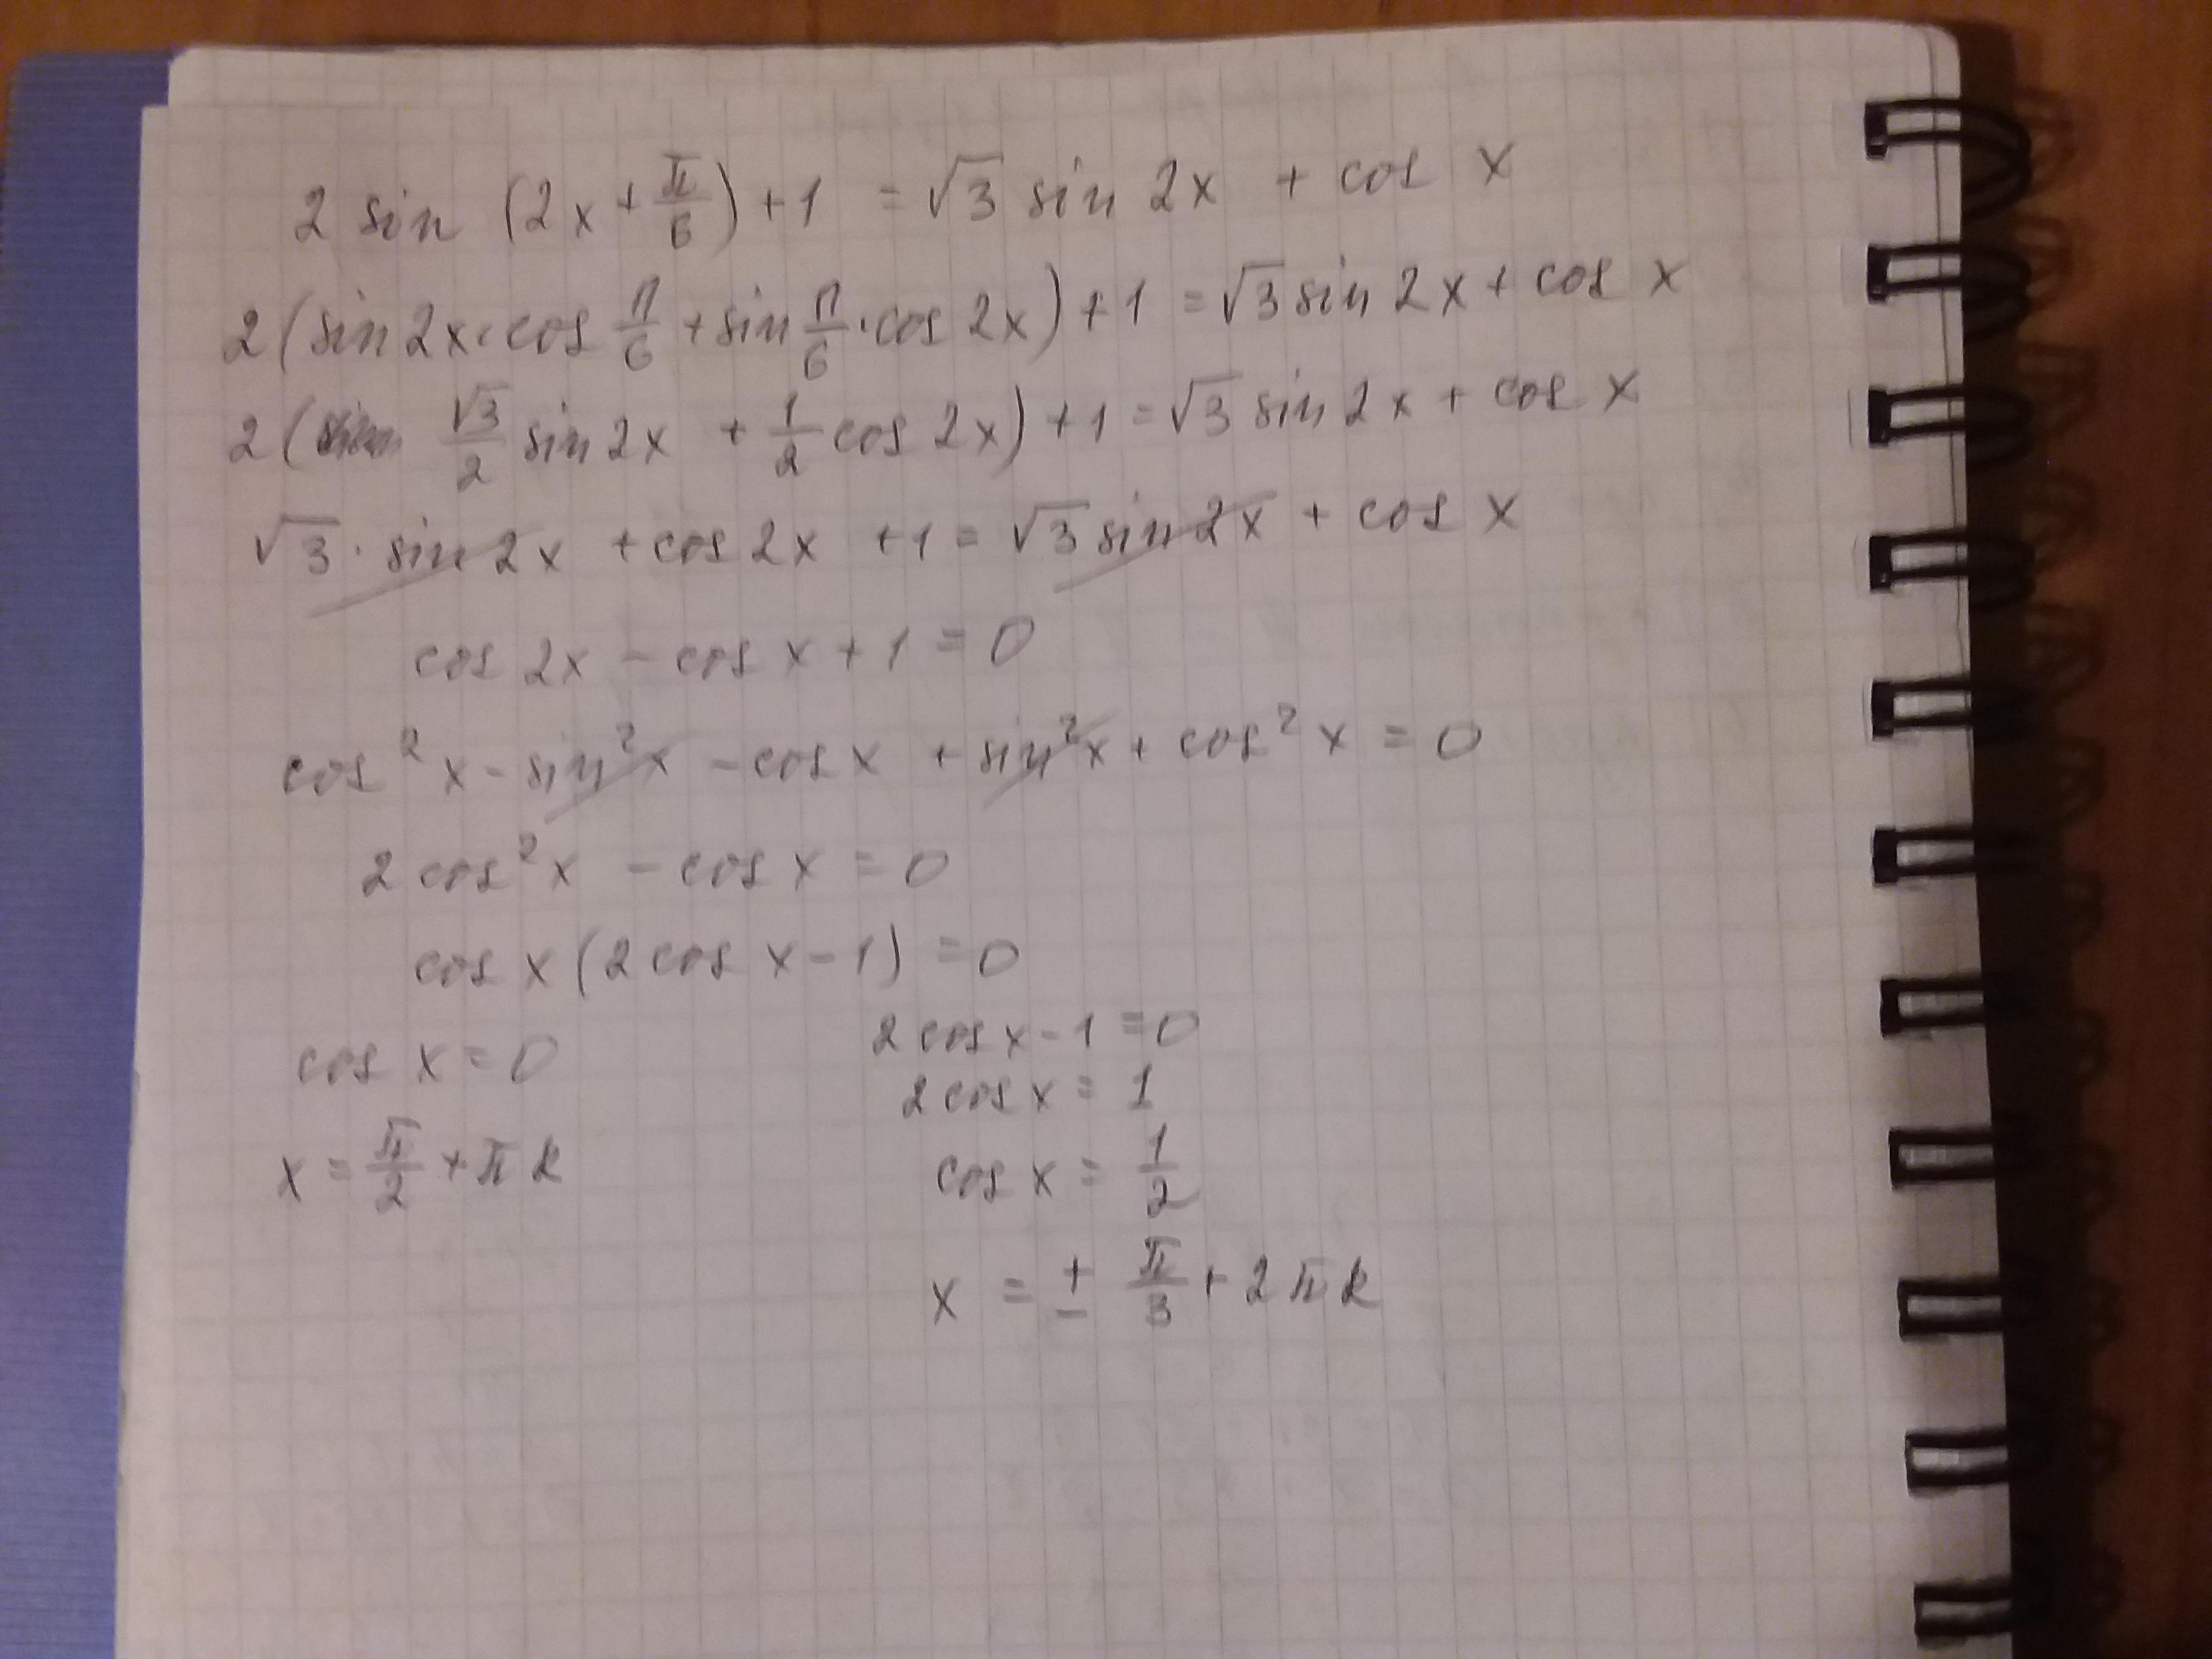 2 sin (2x + π/6) + 1 = √3 sin 2x + cos x
2 (sin 2x · cos π/6 + sin π/6 · cos 2x) + 1 = √3 sin 2x + cos x
2 ( √3/2 sin 2x + 1/2 cos 2x) + 1 = √3 sin 2x + cos x
√3 · sin 2x + cos 2x + 1 = √3 sin 2x + cos x
cos 2x - cos x + 1 = 0
cos² x - sin² x - cos x + sin² x + cos² x = 0
2 cos² x - cos x = 0
cos x (2 cos x - 1) = 0
cos x = 0
x = π/2 + π k
2 cos x - 1 = 0
2 cos x = 1
cos x = 1/2
x = ± π/3 + 2 π k